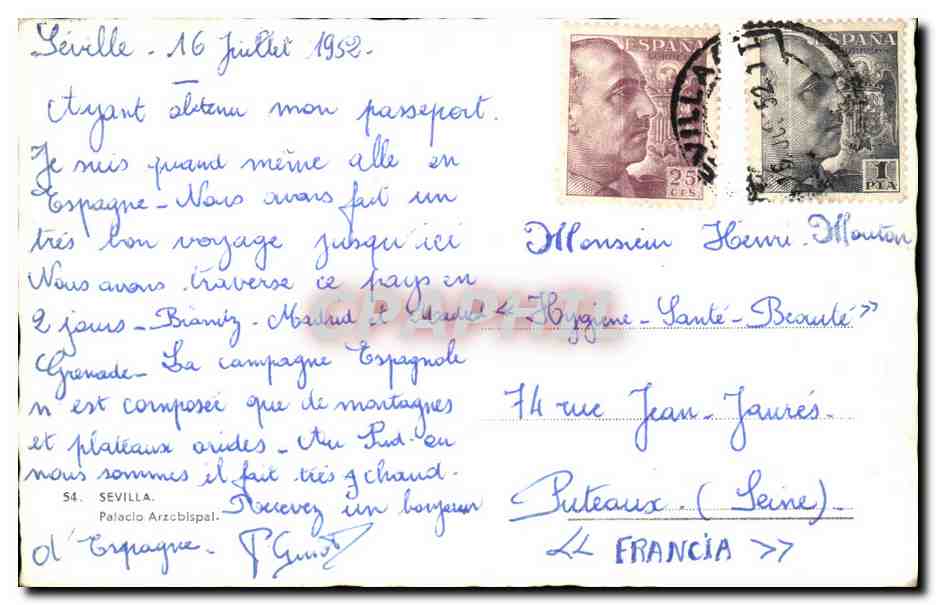 Séville - 16 Juillet 1952-
Ayant obtenu mon passeport.
Je suis quand même allé en
Espagne - Nous avons fait un
très bon voyage jusqu'ici
Nous avons traverse ce pays en
2 jours - Biarritz - Madrid et Madrid
Grenade - La campagne Espagnole
n'est composée que de montagnes
et plateaux arides - Au Sud où
nous sommes il fait très chaud -
Recevez un bonjour
d'Espagne -
54. SEVILLA.
Palacio Arzobispal.
ESPAÑA
CORREOS
25
CTS.
ESPAÑA
1
PTA
Monsieur Henri Mouton
« Hygiene - Santé - Beauté »
74 rue Jean-Jaurés -
Puteaux. (Seine).
<< FRANCIA >>